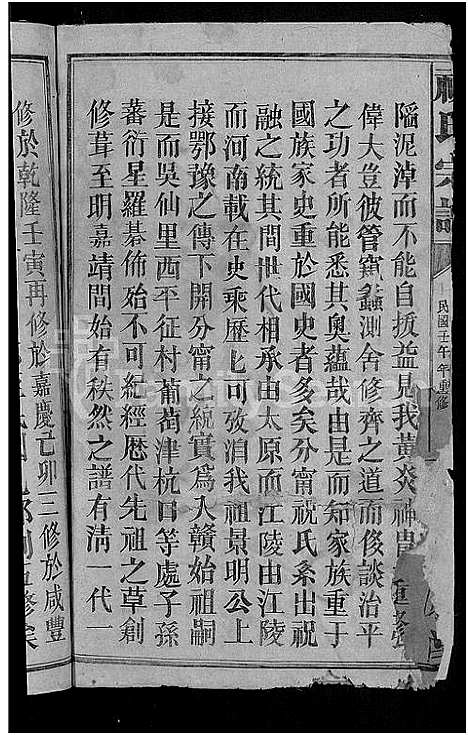 祝氏宗譜
民國壬午年重修
隘泥淖而不能自拔益見我黃炎神胄
偉大豈彼管窺蠡測舍修齊之道而侈談治平
之功者所能悉其奥蘊哉由是而知家族重于
國族家史重於國史者多矣分甯祝氏系出祝
融之統其間世代相承由太原而江陵由江陵
而河南載在史乘歷歷可攷洎我祖景明公上
接鄂豫之傳下開分甯之統實爲入贛始祖嗣
是而吳仙里西平征村葡萄津杭口等處子孫
蕃衍星羅棊佈始不可紀經歷代先祖之草創
修葺至明嘉靖間始有秩然之譜有清一代一
修於乾隆壬寅再修於嘉慶己卯三修於咸豐